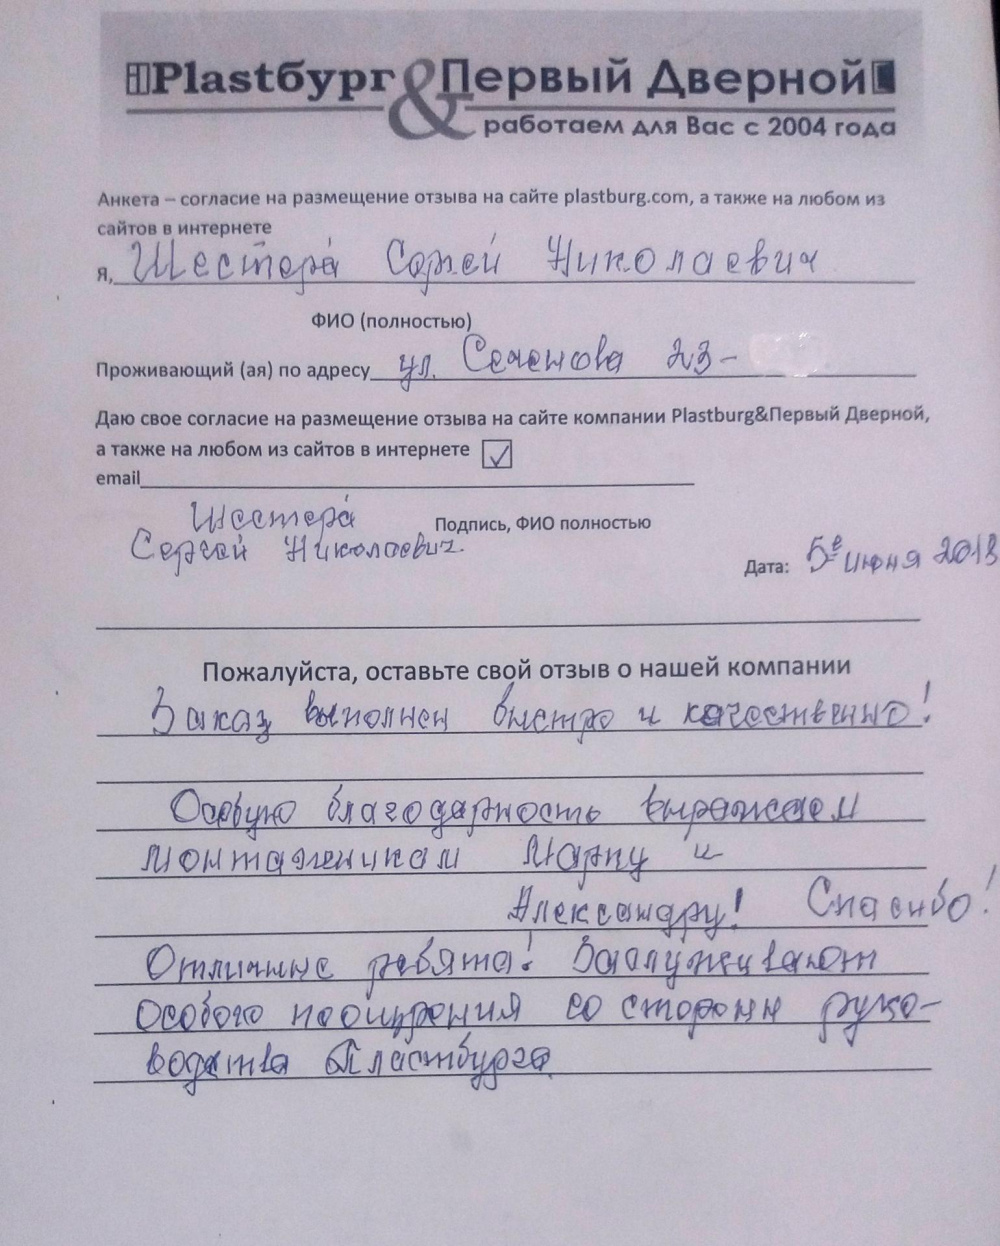 Plastбург & Первый Дверной
работаем для Вас с 2004 года
Анкета – согласие на размещение отзыва на сайте plastburg.com, а также на любом из
сайтов в интернете
Я, Шестера Сергей Николаевич
ФИО (полностью)
Проживающий (ая) по адресу ул. Сеченова 23-
Даю свое согласие на размещение отзыва на сайте компании Plastburg&Первый Дверной,
а также на любом из сайтов в интернете
email
Шестера
Подпись, ФИО полностью
Сергей Николаевич.
Дата: 5е июня 2018
Пожалуйста, оставьте свой отзыв о нашей компании
Заказ выполнен быстро и качественно!
Особую благодарность выражаем
монтажникам Марку и
Александру! Спасибо!
Отличные ребята! Заслуживают
особого поощрения со стороны руко-
водства Пластбурга.